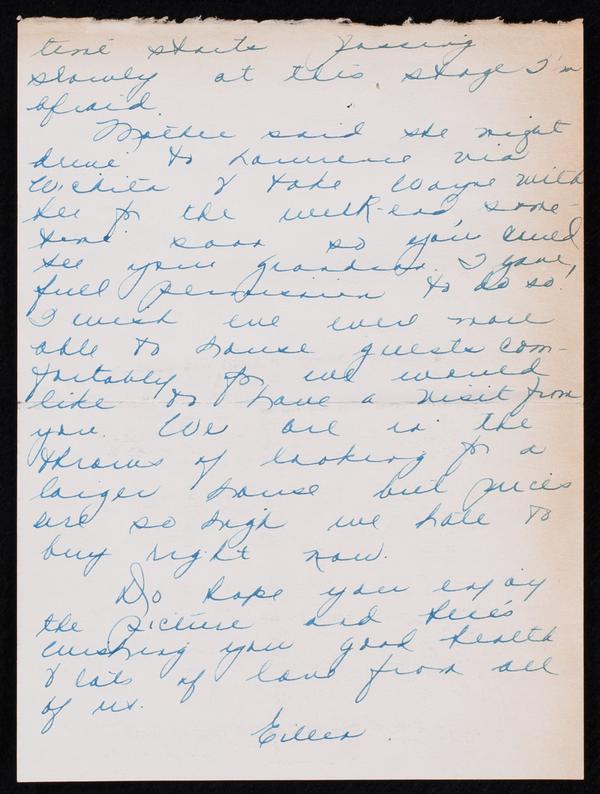 time starts passing
slowly at this stage I'm
afraid.
Mother said she might
drive to Lawrence via
Wichita & take Wayne with
her for the week-end some-
time soon so you could
see your grandson. I gave
full permission to do so.
I wish we were more
able to house guests com-
fortably for we would
like to have a visit from
you. We are in the
throws of looking for a
larger house but prices
are so high we hate to
buy right now.
Do hope you enjoy
the picture and here's
wishing you good health
& lots of love from all
of us.
Eileen